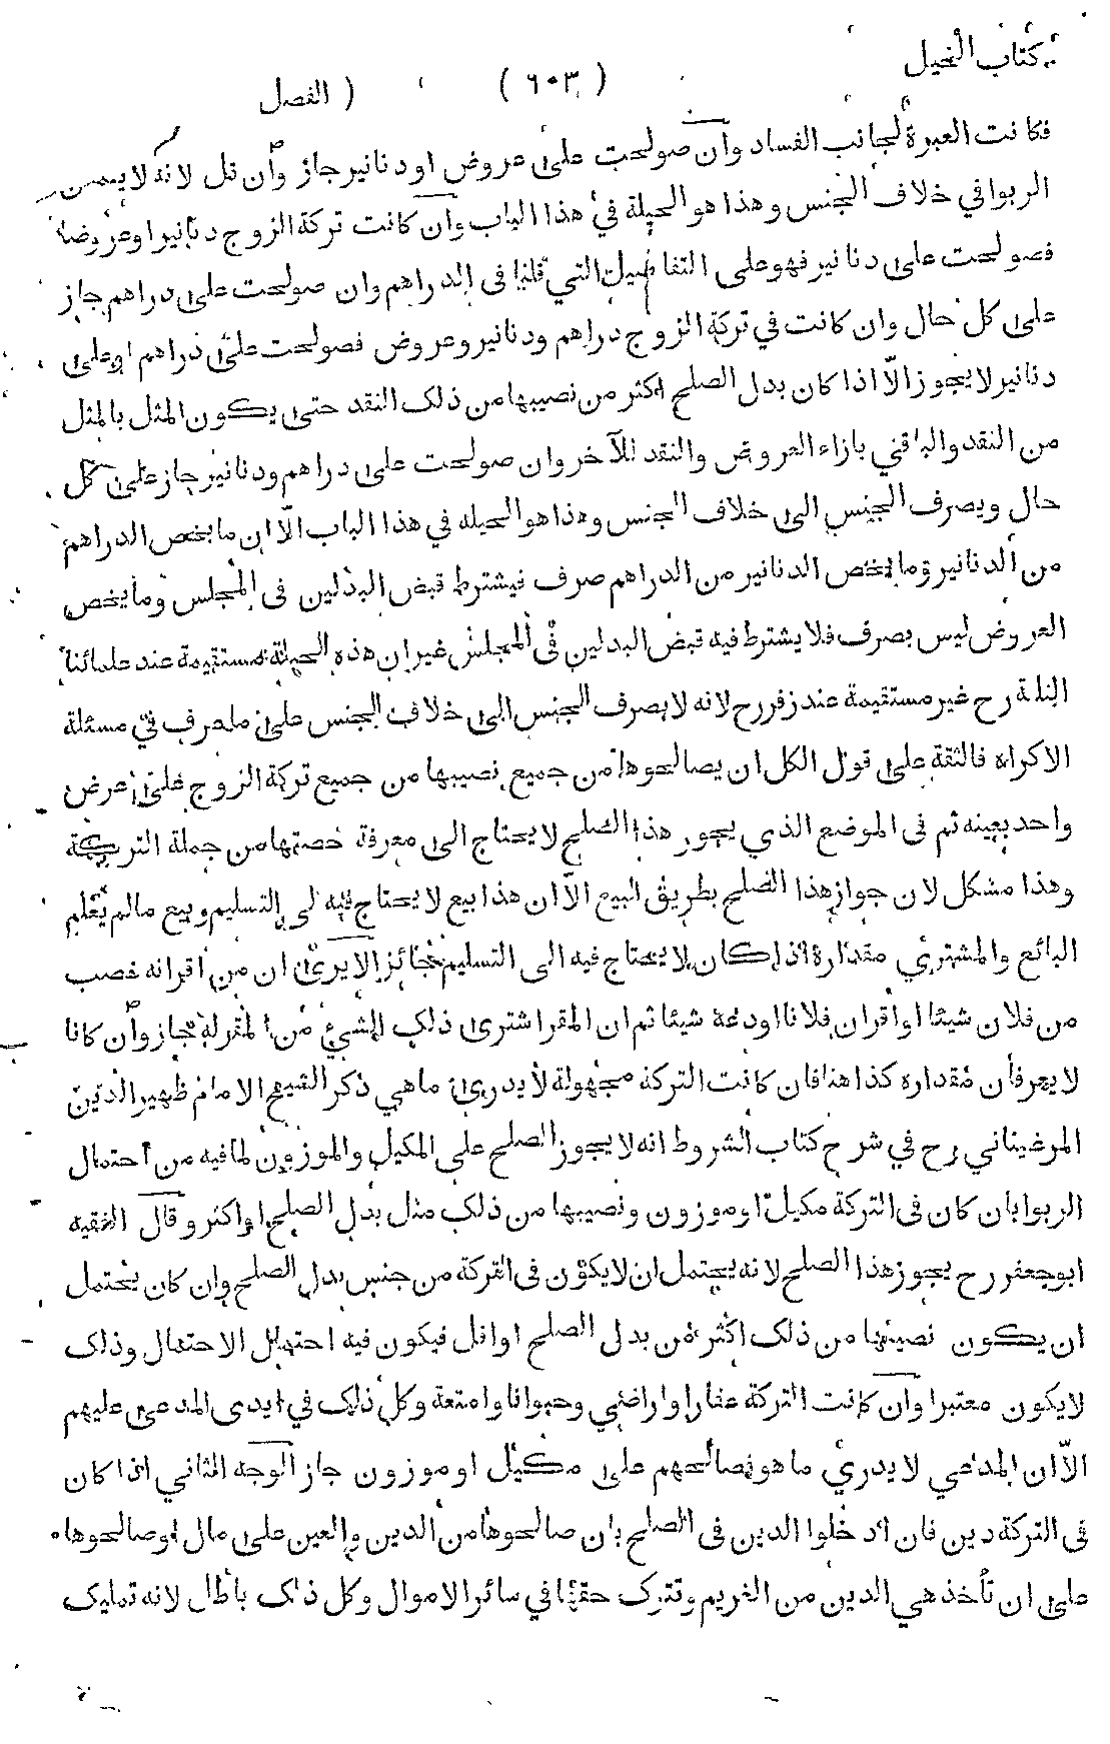 كتاب الحيل
( ٦٠٣ )
( الفصل
فكانت العبرة لجانب الفساد وان صولحت على عروض او دنانير جاز وان قل لانه لا
الربوا في خلاف الجنس وهذا هو الحيلة في هذا الباب وان كانت تركة الزوج دنانير اوعروضا
فصولحت على دنانير فهو على التفاصيل التي قلنا فى الدراهم وان صولحت على دراهم جاز
على كل حال وان كانت في تركة الزوج دراهم ودنانير وعروض فصولحت على دراهم اوعلى
دنانير لا يجوز الّا اذا كان بدل الصلح اكثر من نصيبها من ذلك النقد حتى يكون المثل بالمثل
من النقد والباقي بازاء العروض والنقد للآخر وان صولحت على دراهم ودنانير جاز على كل
حال ويصرف الجنس الى خلاف الجنس وهذا هو الحيله في هذا الباب الّا ان ما يخص الدراهم
من الدنانير وما يخص الدنانير من الدراهم صرف فيشترط قبض البدلين فى المجلس وما يخص
العروض ليس بصرف فلا يشترط فيه قبض البدلين فى المجلس غير ان هذه الحيلة مستقيمة عند علمائنا
الثلثة رح غير مستقيمة عند زفر رح لانه لا يصرف الجنس الى خلاف الجنس على ما عرف في مسئلة
الاكراه فالثقة على قول الكل ان يصالحوها من جميع نصيبها من جميع تركة الزوج على عرض
واحد بعينه ثم فى الموضع الذي يجوز هذا الصلح لا يحتاج الى معرفة حصتها من جملة التركة
وهذا مشكل لان جواز هذا الصلح بطريق البيع الّا ان هذا بيع لا يحتاج فيه الى التسليم وبيع مالم يعلم
البائع والمشتري مقداره اذا كان لا يحتاج فيه الى التسليم جائز الا يرى ان من اقر انه غصب
من فلان شيئا او اقر ان فلانا اودعه شيئا ثم ان المقر اشترى ذلك الشيئ من المقرله جاز وان كانا
لا يعرفان مقداره كذا هنا فان كانت التركة مجهولة لا يدرى ما هي ذكر الشيخ الامام ظهير الدين
المرغيناني رح في شرح كتاب الشروط انه لا يجوز الصلح على المكيل والموزون لما فيه من احتمال
الربوا بان كان فى التركة مكيل او موزون ونصيبها من ذلك مثل بدل الصلح او اكثر وقال الفقيه
ابوجعفر رح يجوز هذا الصلح لانه يحتمل ان لا يكون فى التركة من جنس بدل الصلح وان كان يحتمل
ان يكون نصيبها من ذلك اكثر من بدل الصلح او اقل فيكون فيه احتمال الاحتمال وذلك
لا يكون معتبرا وان كانت التركة عقارا واراضي وحيوانا وامتعة وكل ذلك في ايدى المدعى عليهم
الّا ان المدعي لا يدري ما هو فصالحهم على مكيل او موزون جاز الوجه الثاني اذا كان
فى التركة دين فان ادخلوا الدين فى الصلح بان صالحوها من الدين والعين على مال او صالحوها
على ان تأخذ هي الدين من الغريم وتترك حقها في سائر الاموال وكل ذلك باطل لانه تمليك